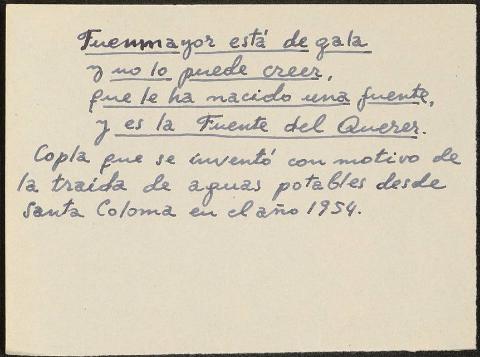 Fuenmayor está de gala
y no lo puede creer,
que le ha nacido una fuente,
y es la Fuente del Querer.
Copla que se inventó con motivo de
la traida de aguas potables desde
Santa Coloma en el año 1954.